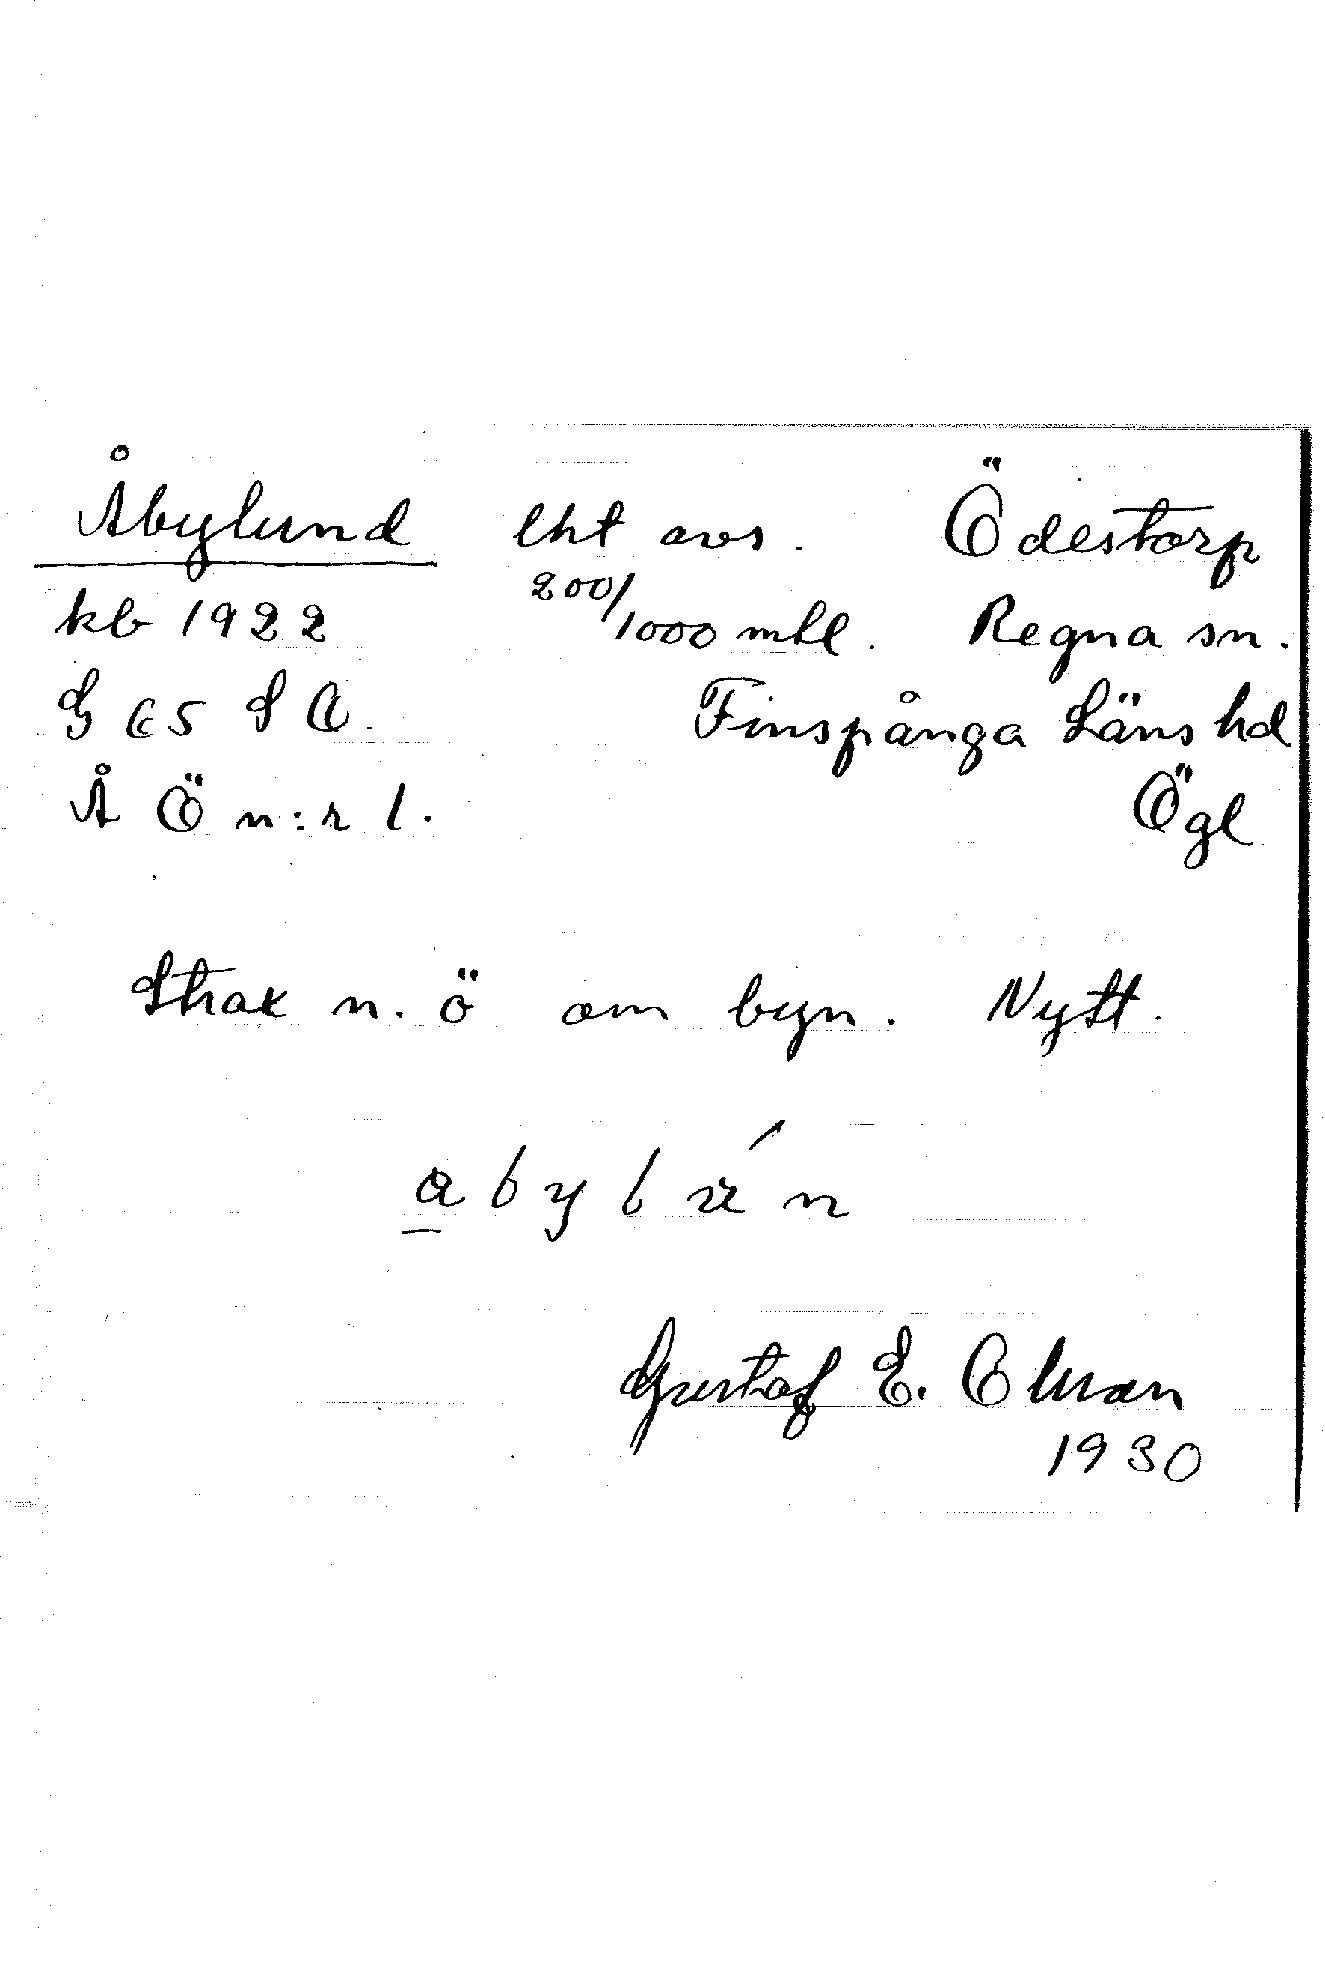 Åbylund lht avs. Ödestorp
kb 1922 200/1000 mtl. Regna sn.
G 65 S Ö. Finspånga Läns hd
Å Ö n:r 1. Ögl
Strax n. ö om byn. Nytt.
Gustaf E. Ohman
1930